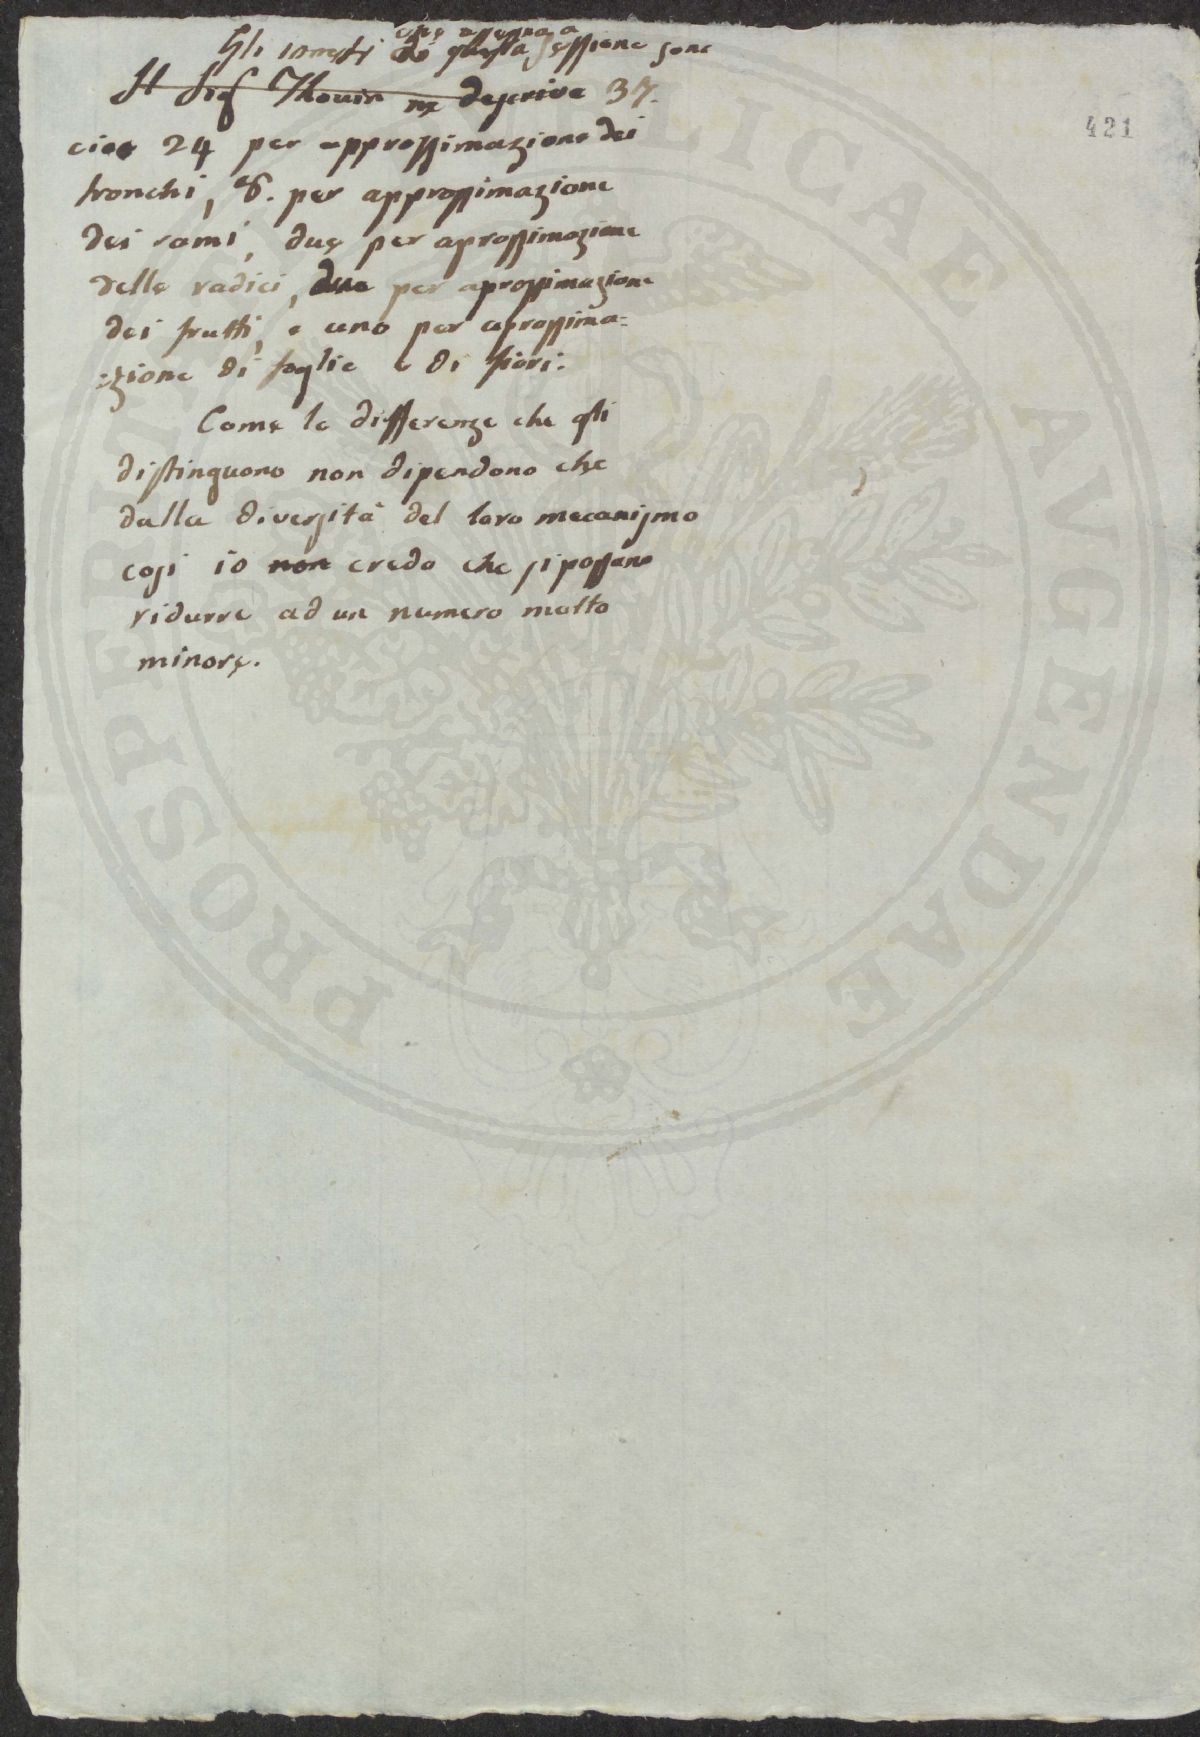 che assegna a
Gli innesti di questa sessione sono
Il Sig Thouin ne descrive 37.
cioe 24 per approssimazione dei
tronchi, 8. per approssimazione
dei rami, due per aprossimazione
delle radici, due per aprossimazione
dei frutti, e uno per aprossima=
:zione di foglie e di fiori:
Come le differenze che gli
distinguono non dipendono che
dalla diversità del loro mecanismo
cosi io non credo che si possano
ridurre ad un numero molto
minore.
421
PROSPERITATI PUBLICAE AVGENDAE